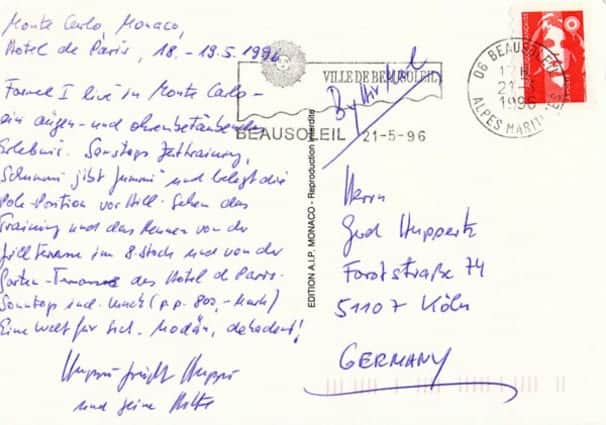 Monte Carlo, Monaco,
Hotel de Paris, 18.-19.5.1996
Formel I live in Monte Carlo -
ein augen- und ohrenbetäubendes
Erlebnis. Samstags Zeittraining,
Schumi gibt Gummi und belegt die
Pole-Position vor Hill. Sehen das
Training und das Rennen von der
Grillterrasse im 8. Stock und von der
Garten-Terrasse des Hotel de Paris.
Sonntags incl. Lunch (p.p. 800,- Mark)
Eine Welt für sich. Mondän, dekadent!
Huppi grüßt Huppi
und seine
VILLE DE BEAUSOLEIL
BEAUSOLEIL 21-5-96
By Air Mail
06 BEAUSOLEIL
17 H
21-5
1996
ALPES MARITIMES
EDITION A.I.P. MONACO - Reproduction interdite
Herrn
Gerd Huppertz
Forststraße 74
51107 Köln
GERMANY